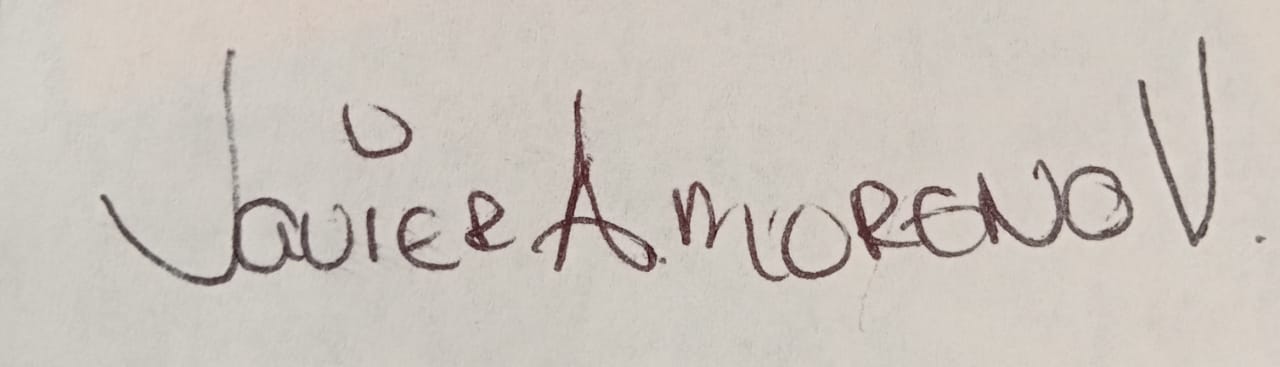 Javier A. MORENO V.